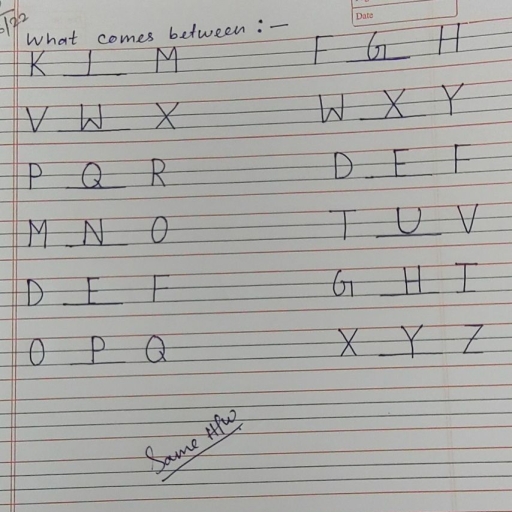 /22
Date
What comes between :-
K L M F G H
V W X W X Y
P Q R D E F
M N O T U V
D E F G H I
O P Q X Y Z
Same H/W